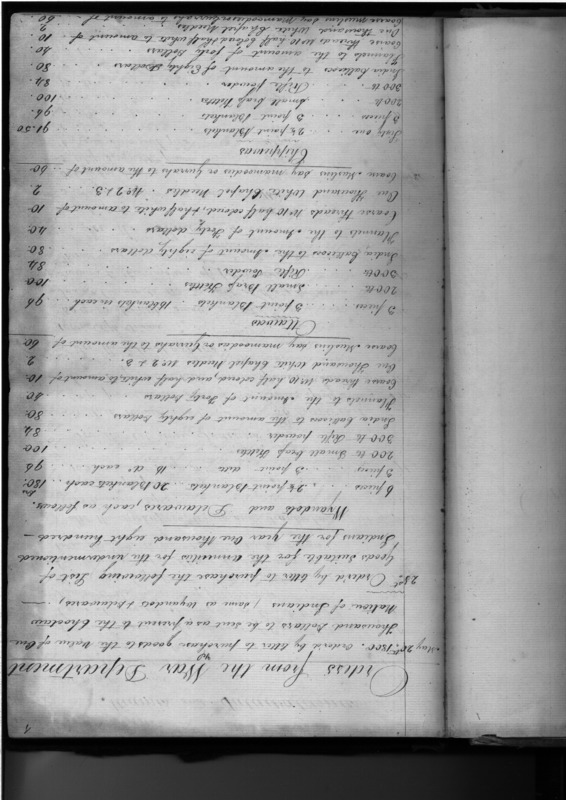 1
Orders from the War Department
May 20th 1800. Order'd by letter to purchase goods to the value of One
Thousand Dollars to be sent as a present to the Choctaw
Nation of Indians, same as Wyandot & Delawares,
23d Order'd by letter to purchase the following List of
Goods suitable for the Annuities for the undermentioned
Indians for the year One thousand eight hundred
Wyandots and Delawares, each as follows.
6 pieces 2½ point Blankets 20 Blankets each 180.
3 pieces 3 point ditto 16 do each 96
200 lb Small Brass Kettles 100
300 lb Rifle powder 84
India Callicoes to the amount of eighty dollars 80
Flannels to the Amount of Forty dollars 40
Coarse threads No 10 half colored, and half white to amount of 10
One Thousand White Chapel Needles No 2 & 3. 2
Coarse Muslins say mamoodies or Gurrahs to the amount of 60
Ottawas
3 pieces 3 point Blankets 16 Blankets in each 96
200 lb Small Brass Kettles 100
300 lb Rifle Powder 84
India Callicoes to the Amount of eighty dollars 80
Flannels to the Amount of Forty dollars 40
Coarse threads No 10 half colored, & half white to amount of 10
One Thousand White Chapel Needles No 2 & 3 2
Coarse Muslins say mamoodies or Gurrahs to the amount of 60
Chippewas
Sixty one 2½ point Blankets 91.50
3 pieces 3 point Blankets 96
200 lb Small Brass Kettles 100
300 lb Rifle powder 84
India Callicoes to the amount of Eighty Dollars 80
Flannels to the amount of Forty Dollars 40
Coarse threads No 10 half colored & half white to amount of 10
One thousand White Chapel Needles 2
Coarse muslins say Mamoodies or Gurrahs to amount of 60